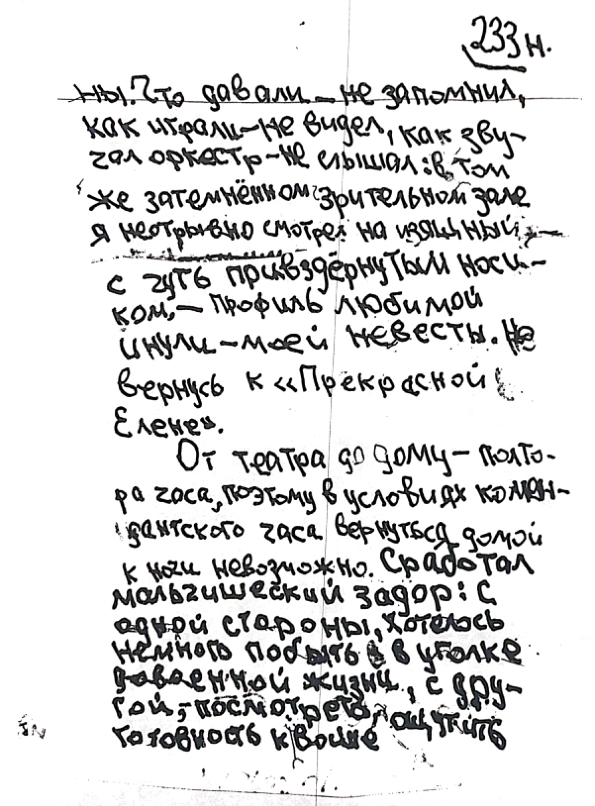 233 н.
ны. Что давали – не запомнил,
как играли – не видел, как зву-
чал оркестр – не слышал: в том
же затемнённом зрительном зале
я неотрывно смотрел на изящный, –
с чуть привздёрнутым носи-
ком, – профиль любимой
Инули – моей невесты. Но
вернусь к «Прекрасной
Елене».
От театра до дому – полто-
ра часа, поэтому в условиях комен-
дантского часа вернуться домой
к ночи невозможно. Сработал
мальчишеский задор: с
одной стороны, хотелось
немного побыть в уголке
довоенной жизни, с дру-
гой, – посмотреть, ощутить
готовность к войне